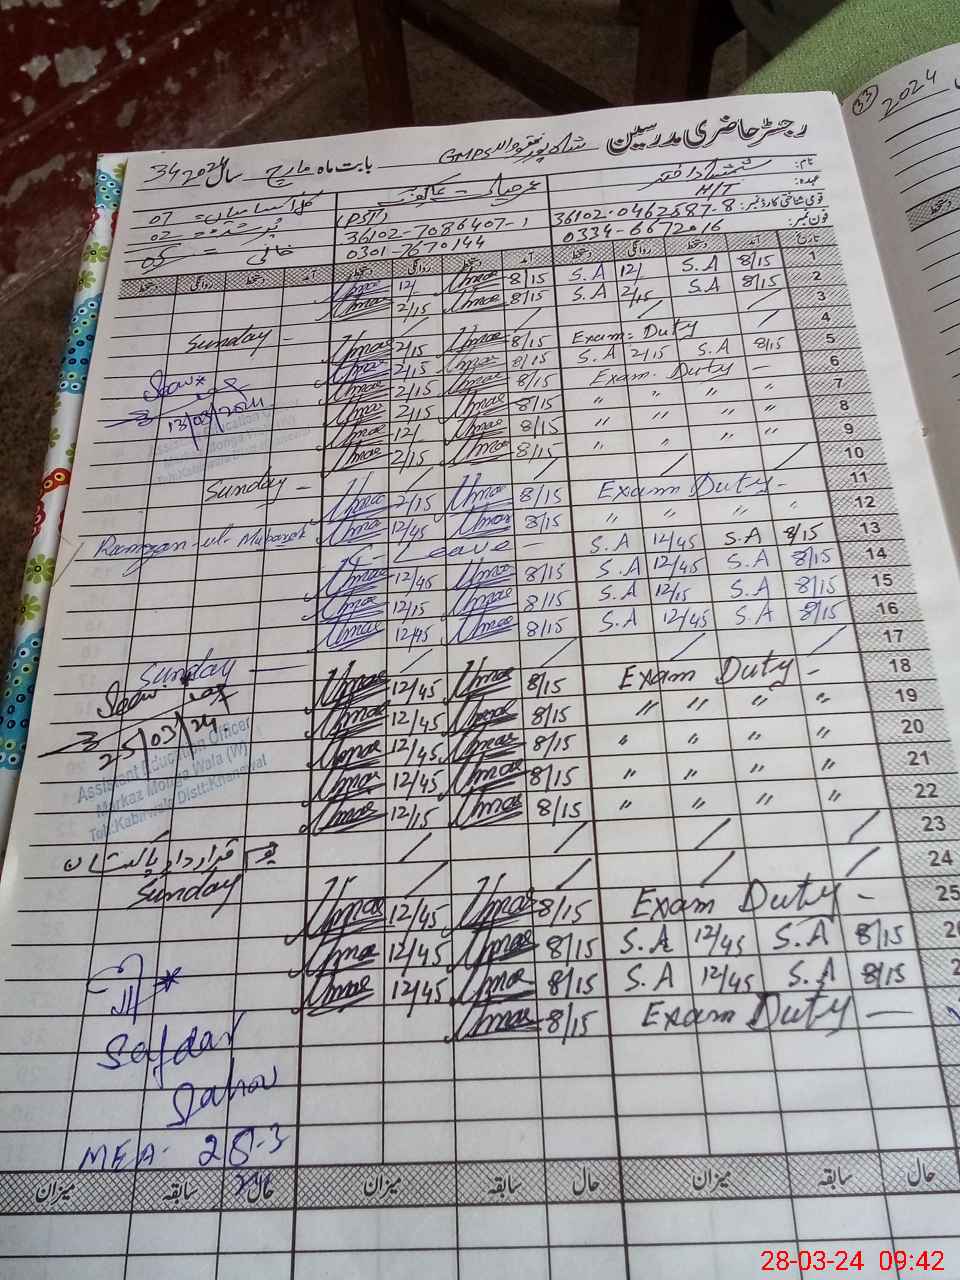 33 2024
رجسٹر حاضری مدرسین GMPS بابت ماہ مارچ سال 2024 34
نام:
عہدہ: H/T (PST)
قومی شناختی کارڈ نمبر: 36102-0462587-8 36102-7086407-1
فون نمبر: 0334-6672016 0301-7670144
07
02
خالی 05
تاریخ آمد دستخط روانگی دستخط آمد دستخط روانگی دستخط آمد دستخط روانگی دستخط
1 8/15 S.A 12/ S.A 8/15 Umar 12/ Umar
2 8/15 S.A 2/15 S.A 8/15 Umar 2/15 Umar
3 / / / / Sunday -
4 Exam. Duty 8/15 Umar 2/15 Umar
5 8/15 S.A 2/15 S.A 8/15 Umar 2/15 Umar
6 Exam. Duty - 8/15 Umar 2/15 Umar
7 " " " " 8/15 Umar 2/15 Umar
8 " " " " 8/15 Umar 12/ Umar
9 " " " " 8/15 Umar 2/15 Umar
10 / / / / Sunday -
11 Exam Duty - 8/15 Umar 2/15 Umar
12 " " " " 8/15 Umar 12/45 Umar Ramzan-ul-Mubarak
13 8/15 S.A 12/45 S.A - Leave -
14 8/15 S.A 12/45 S.A 8/15 Umar 12/45 Umar
15 8/15 S.A 12/15 S.A 8/15 Umar 12/15 Umar
16 8/15 S.A 12/45 S.A 8/15 Umar 12/45 Umar
17 / / / / Sunday -
18 Exam Duty - 8/15 Umar 12/45 Umar
19 " " " " 8/15 Umar 12/45 Umar
20 " " " " 8/15 Umar 12/45 Umar
21 " " " " 8/15 Umar 12/45 Umar
22 " " " " 8/15 Umar 12/15 Umar
23 / / / / یوم قرارداد پاکستان
24 / / / / Sunday
25 Exam Duty - 8/15 Umar 12/45 Umar
8/15 S.A 12/45 S.A 8/15 Umar 12/45 Umar
8/15 S.A 12/45 S.A 8/15 Umar 12/45 Umar
Exam Duty - 8/15 Umar
13/03/2024
Assistant Education Officer
25/03/24
Assistant Education Officer
Markaz Monga Wala (W)
Teh:Kabirwala Distt:Khanewal
Safdar
MEA- 28-3
حال سابقہ میزان حال سابقہ میزان حال سابقہ میزان
28-03-24 09:42